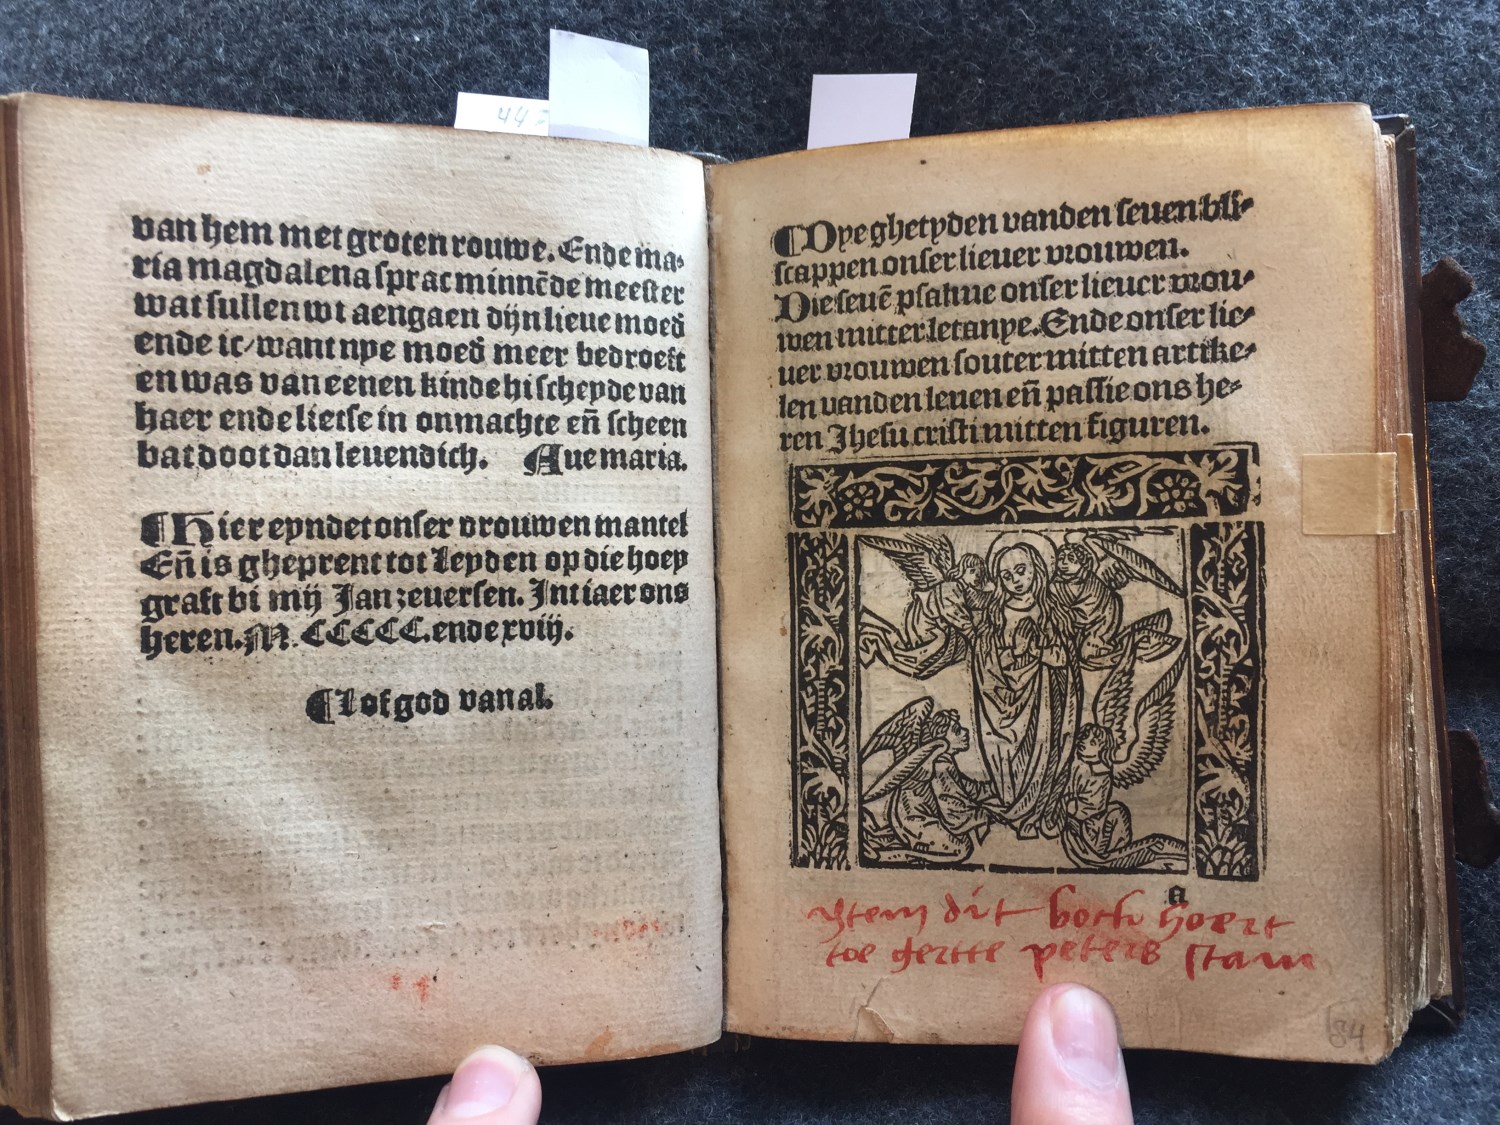 447
van hem met groten rouwe. Ende ma-
ria magdalena sprac minnēde meester
wat sullen wt aengaen dijn lieue moed̄
ende ic/want nye moed̄ meer bedroeft
en was van eenen kinde hi scheyde van
haer ende lietse in onmachte eñ scheen
bat doot dan leuendich. Aue maria.
¶Hier eyndet onser vrouwen mantel
Eñ is gheprent tot Leyden op die hoey
graft bi mij Jan zeuersen. Int iaer ons
heren. M. CCCCC. ende xviij.
¶Lof god van al.
¶Dye ghetyden vanden seuen bli-
scappen onser lieuer vrouwen.
Die seuē psalme onser lieuer vrou-
wen mitter letanye. Ende onser lie-
uer vrouwen souter mitten artike-
len vanden leuen eñ passie ons he-
ren Jhesu cristi mitten figuren.
a
ytem dit boeck hoert
toe gertte peters stam
84